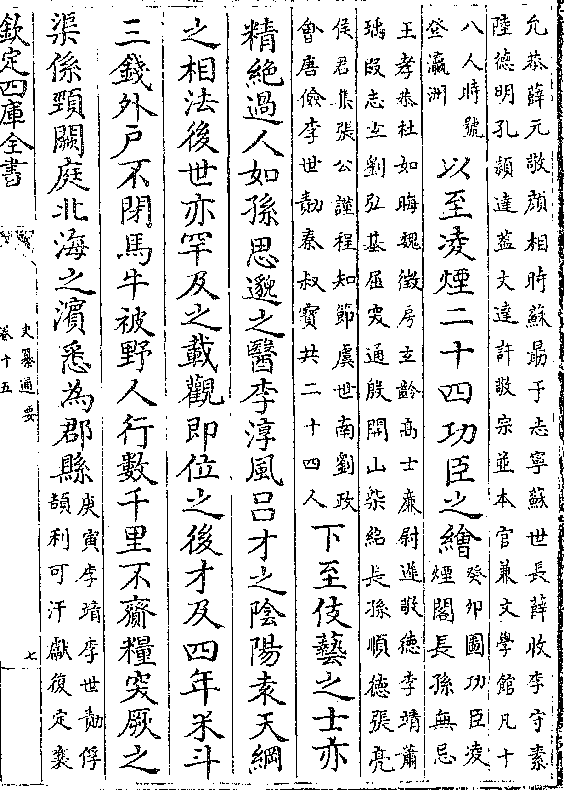 允恭薛元敬顔相時蘇勗于志寧蘇世長薛收李守素
陸德明孔頴達蓋文達許敬宗並本官兼文學館凡十
八人時號
登瀛洲
以至凌煙二十四功臣之繪
癸卯圖功臣凌
煙閣長孫無忌
王孝恭杜如晦魏徴房玄齡高士廉尉遲敬德李靖蕭
瑀段志玄劉弘基屈突通殷開山柴紹長孫順德張亮
侯君集張公謹程知節虞世南劉政
會唐儉李世勣秦叔寳共二十四人
下至伎藝之士亦
精絶過人如孫思邈之醫李淳風吕才之陰陽袁天綱
之相法後世亦罕及之載觀即位之後才及四年米斗
三錢外户不閉馬牛被野人行數千里不齎糧突厥之
渠係頸闕庭北海之濵悉為郡縣
庚寅李靖李世勣俘
頡利可汗獻復定襄
欽定四庫全書
史纂通要
卷十五
七